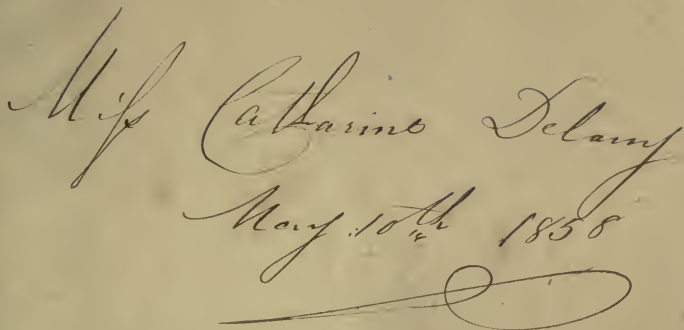 Miss Catharine Delany
May 10th 1858